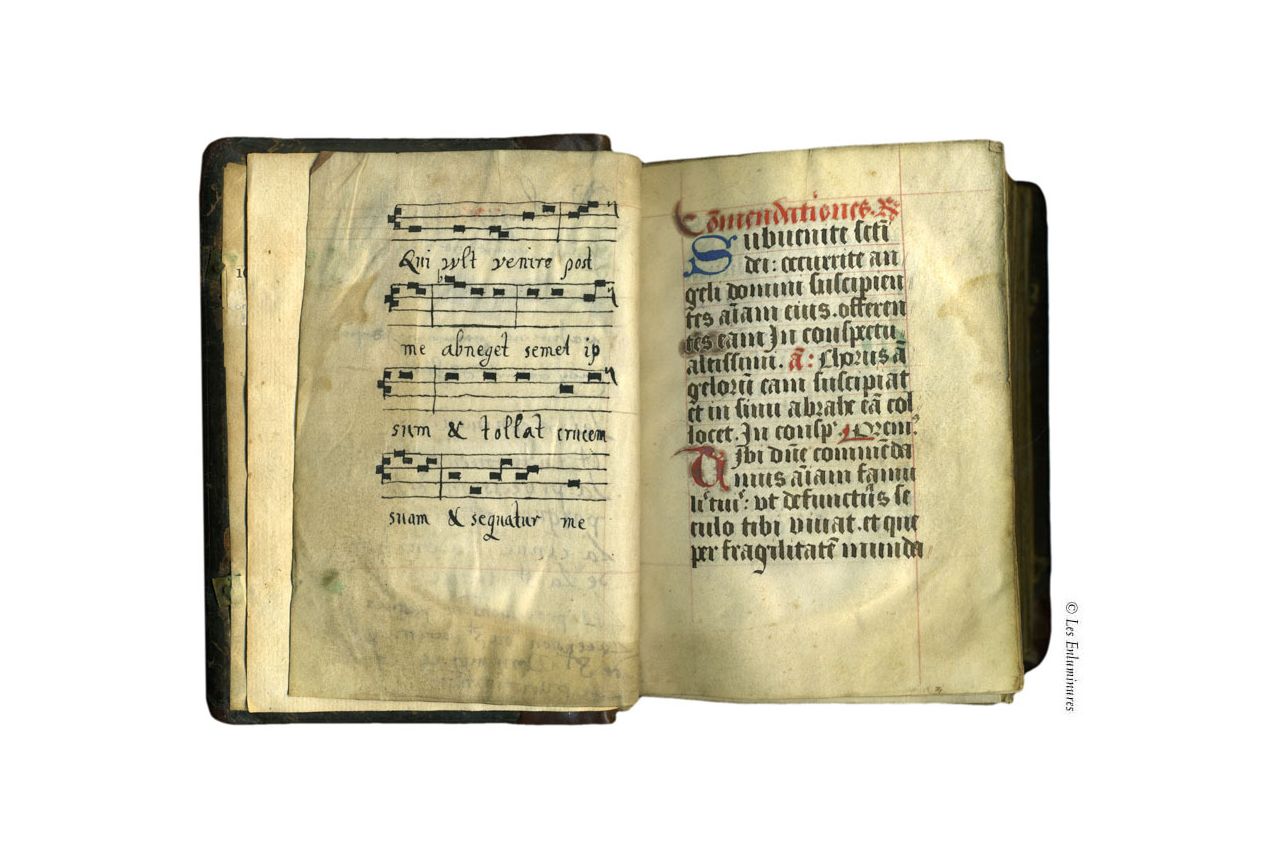 Qui vult venire post
me abneget semet ip
sum & tollat crucem
suam & sequatur me
Cōmendationes. R
Subuenite scti
dei: occurrite an
geli domini suscipien
tes aīam eius. offeren
tes eam In conspectu
altissimi. ā: Chorus ā
gelorū eam suscipiat
et in sinu abrahe eā col
locet. In consp' Orem'
Tibi dn̄e commēda
mus aīam famu
li tui: vt defunctus se
culo tibi viuat. et que
per fragilitatē munda
© Les Enluminures